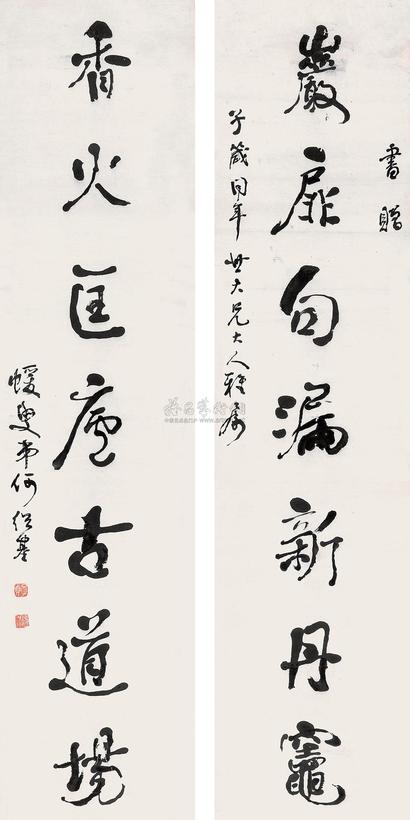 書贈
巖扉句漏新丹竈
子箴同年世大兄大人雅屬
香火匡廬古道場
蝯叟弟何紹基